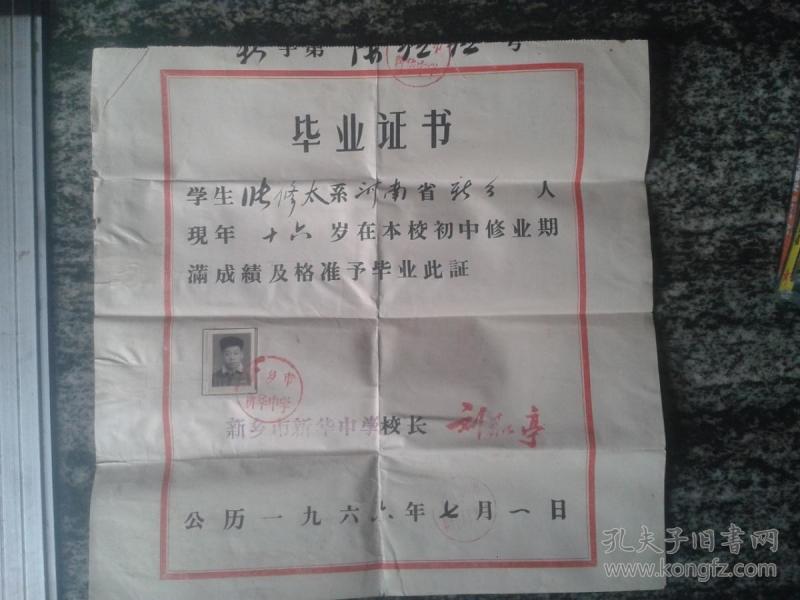 字第 号
毕业证书
学生 修太系河南省新乡 人
现年 十六 岁在本校初中修业期
滿成績及格准予毕业此証
乡市
新华中学
新乡市新华中学校长 刘 亭
公历一九六六年七月一日
孔夫子旧书网
www.kongfz.com